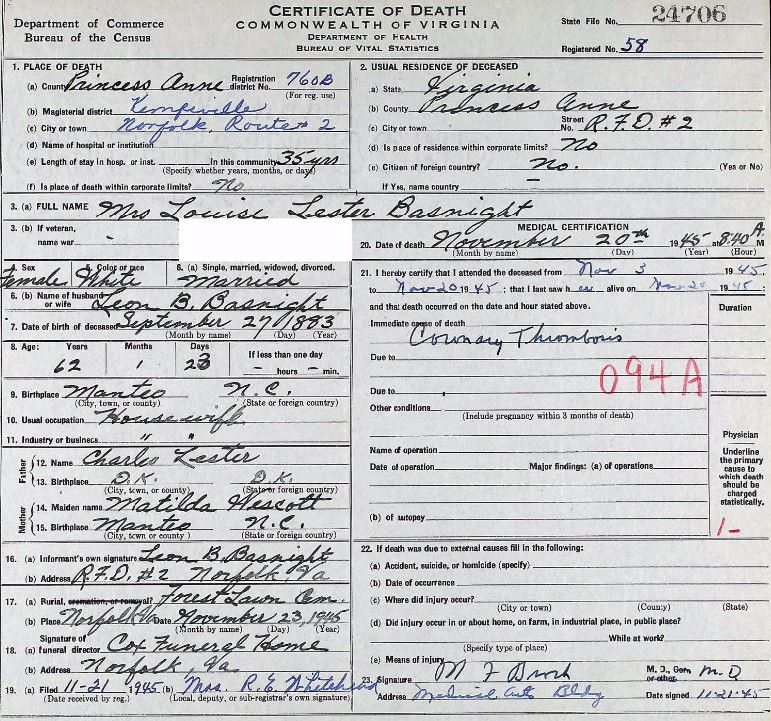 CERTIFICATE OF DEATH
Department of Commerce
Bureau of the Census
COMMONWEALTH OF VIRGINIA
DEPARTMENT OF HEALTH
BUREAU OF VITAL STATISTICS
State File No. 24706
Registered No. 58
1. PLACE OF DEATH
(a) County Princess Anne Registration district No. 760B
(For reg. use)
(b) Magisterial district Kempsville
(c) City or town Norfolk, Route 2
(d) Name of hospital or institution
(e) Length of stay in hosp. or inst. In this community 35 yrs
(Specify whether years, months, or days)
(f) Is place of death within corporate limits? No
2. USUAL RESIDENCE OF DECEASED
(a) State Virginia
(b) County Princess Anne
(c) City or town Street No. R.F.D. #2
(d) Is place of residence within corporate limits? No
(e) Citizen of foreign country? No. (Yes or No)
If Yes, name country —
3. (a) FULL NAME Mrs Louise Lester Basnight
3. (b) If veteran,
name war -
4. Sex 5. Color or race 6. (a) Single, married, widowed, divorced.
Female White Married
6. (b) Name of husband or wife Leon B. Basnight
7. Date of birth of deceased September 27 1883
(Month by name) (Day) (Year)
8. Age: Years Months Days If less than one day
62 1 23 — hours — min.
9. Birthplace Manteo N.C.
(City, town, or county) (State or foreign country)
10. Usual occupation Housewife
11. Industry or business " "
Father
12. Name Charles Lester
13. Birthplace D.K. D.K.
(City, town, or county) (State or foreign country)
Mother
14. Maiden name Matilda Wescott
15. Birthplace Manteo N.C.
(City, town or county) (State or foreign country)
16. (a) Informant's own signature Leon B. Basnight
(b) Address R.F.D. #2 Norfolk, Va
17. (a) Burial, cremation, or removal? Forest Lawn Cem.
(b) Place Norfolk Va Date November 23, 1945
(Month by name) (Day) (Year)
18. (a) Signature of funeral director Cox Funeral Home
(b) Address Norfolk, Va
19. (a) Filed 11-21 1945 (b) Mrs. R. E. Whitehead
(Date received by reg.) (Local, deputy, or sub-registrar's own signature)
MEDICAL CERTIFICATION
20. Date of death November 20th 1945 at 8:40 A. M
(Month by name) (Day) (Year) (Hour)
21. I hereby certify that I attended the deceased from Nov 3 1945,
to Nov 20 1945; that I last saw her alive on Nov 20 1945;
and that death occurred on the date and hour stated above.
Duration
Immediate cause of death
Coronary Thrombosis
Due to
094A
Due to
Other conditions
(Include pregnancy within 3 months of death)
Name of operation
Date of operation Major findings: (a) of operations
(b) of autopsy
Physician
Underline the primary cause to which death should be charged statistically.
1-
22. If death was due to external causes fill in the following:
(a) Accident, suicide, or homicide (specify)
(b) Date of occurrence
(c) Where did injury occur?
(City or town) (County) (State)
(d) Did injury occur in or about home, on farm, in industrial place, in public place?
While at work?
(Specify type of place)
(e) Means of injury
23. Signature M. D., Coro. or other M.D
Address Medical Arts Bldg Date signed 11-21-45